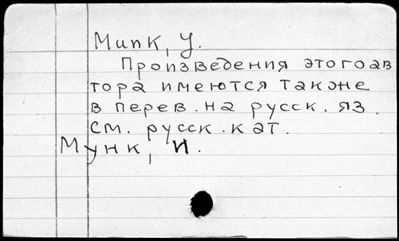 Munk, У.
Произведения этого ав
тора имеются также
в перев. на русск. яз.
См. русск. кат.
Мунк, И.